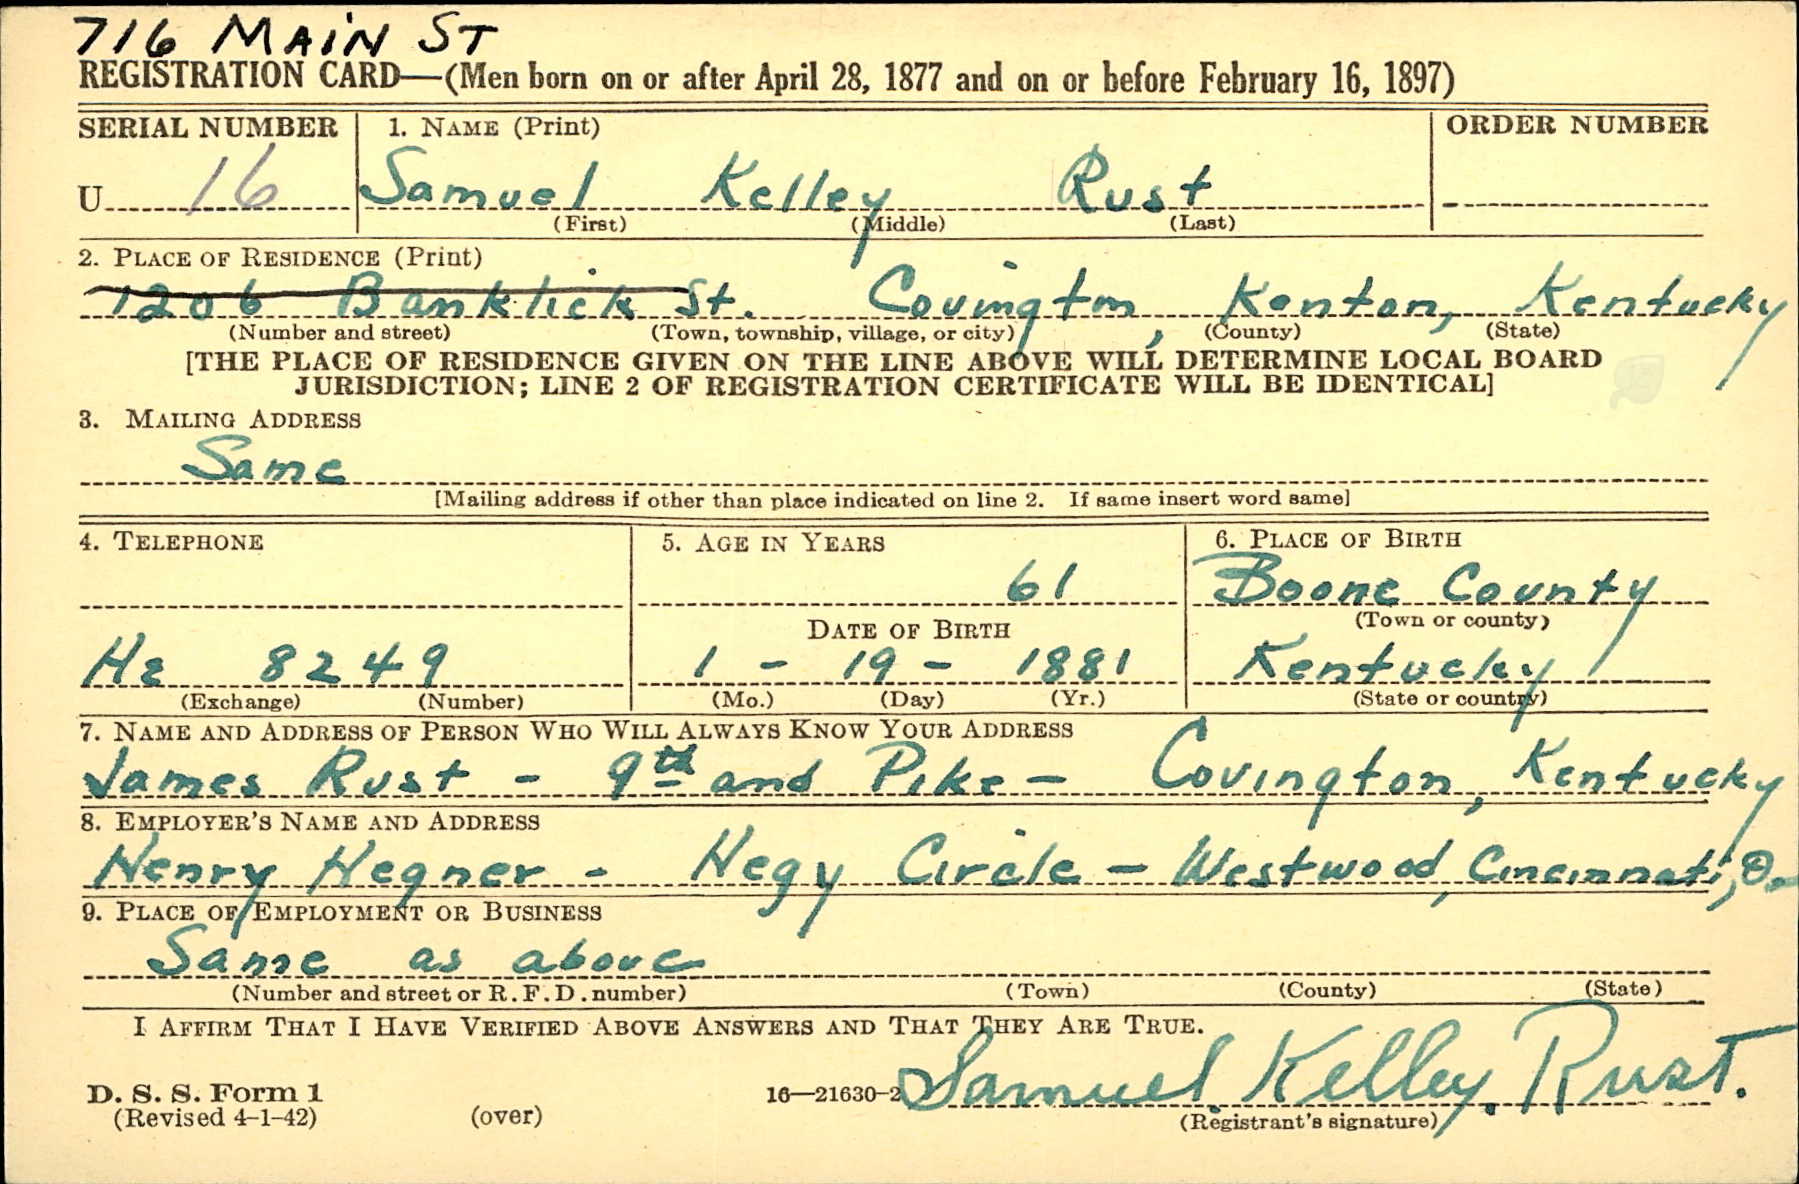 716 MAIN ST
REGISTRATION CARD—(Men born on or after April 28, 1877 and on or before February 16, 1897)
SERIAL NUMBER 1. NAME (Print) ORDER NUMBER
U 16 Samuel Kelley Rust
(First) (Middle) (Last)
2. PLACE OF RESIDENCE (Print)
1206 Banklick St. Covington, Kenton, Kentucky
(Number and street) (Town, township, village, or city) (County) (State)
[THE PLACE OF RESIDENCE GIVEN ON THE LINE ABOVE WILL DETERMINE LOCAL BOARD
JURISDICTION; LINE 2 OF REGISTRATION CERTIFICATE WILL BE IDENTICAL]
3. MAILING ADDRESS
Same
[Mailing address if other than place indicated on line 2. If same insert word same]
4. TELEPHONE 5. AGE IN YEARS 6. PLACE OF BIRTH
61 Boone County
DATE OF BIRTH (Town or county)
He 8249 1 - 19 - 1881 Kentucky
(Exchange) (Number) (Mo.) (Day) (Yr.) (State or country)
7. NAME AND ADDRESS OF PERSON WHO WILL ALWAYS KNOW YOUR ADDRESS
James Rust - 9th and Pike - Covington, Kentucky
8. EMPLOYER'S NAME AND ADDRESS
Henry Hegner - Hegy Circle - Westwood, Cincinnati, O.
9. PLACE OF EMPLOYMENT OR BUSINESS
Same as above
(Number and street or R. F. D. number) (Town) (County) (State)
I AFFIRM THAT I HAVE VERIFIED ABOVE ANSWERS AND THAT THEY ARE TRUE.
Samuel Kelley Rust.
D. S. S. Form 1 16—21630-2
(Revised 4-1-42) (over) (Registrant's signature)